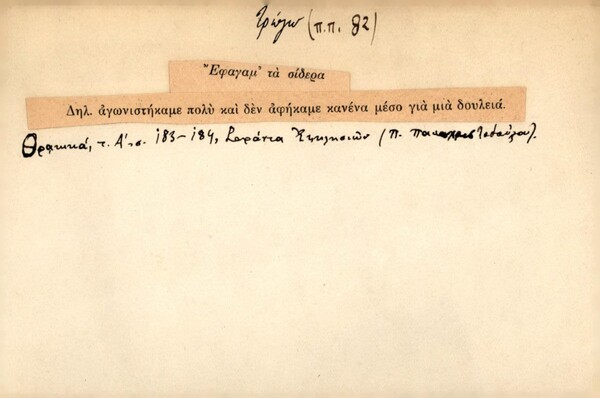 τρώγω (π.π. 82)
Ἔφαγαμ' τὰ σίδερα
Δηλ. ἀγωνιστήκαμε πολὺ καὶ δὲν ἀφήκαμε κανένα μέσο γιὰ μιὰ δουλειά.
Θρακικά, τ. Α'. σ. 183-184, Σαράντα Ἐκκλησιῶν (π. Παπαχριστοδούλου).